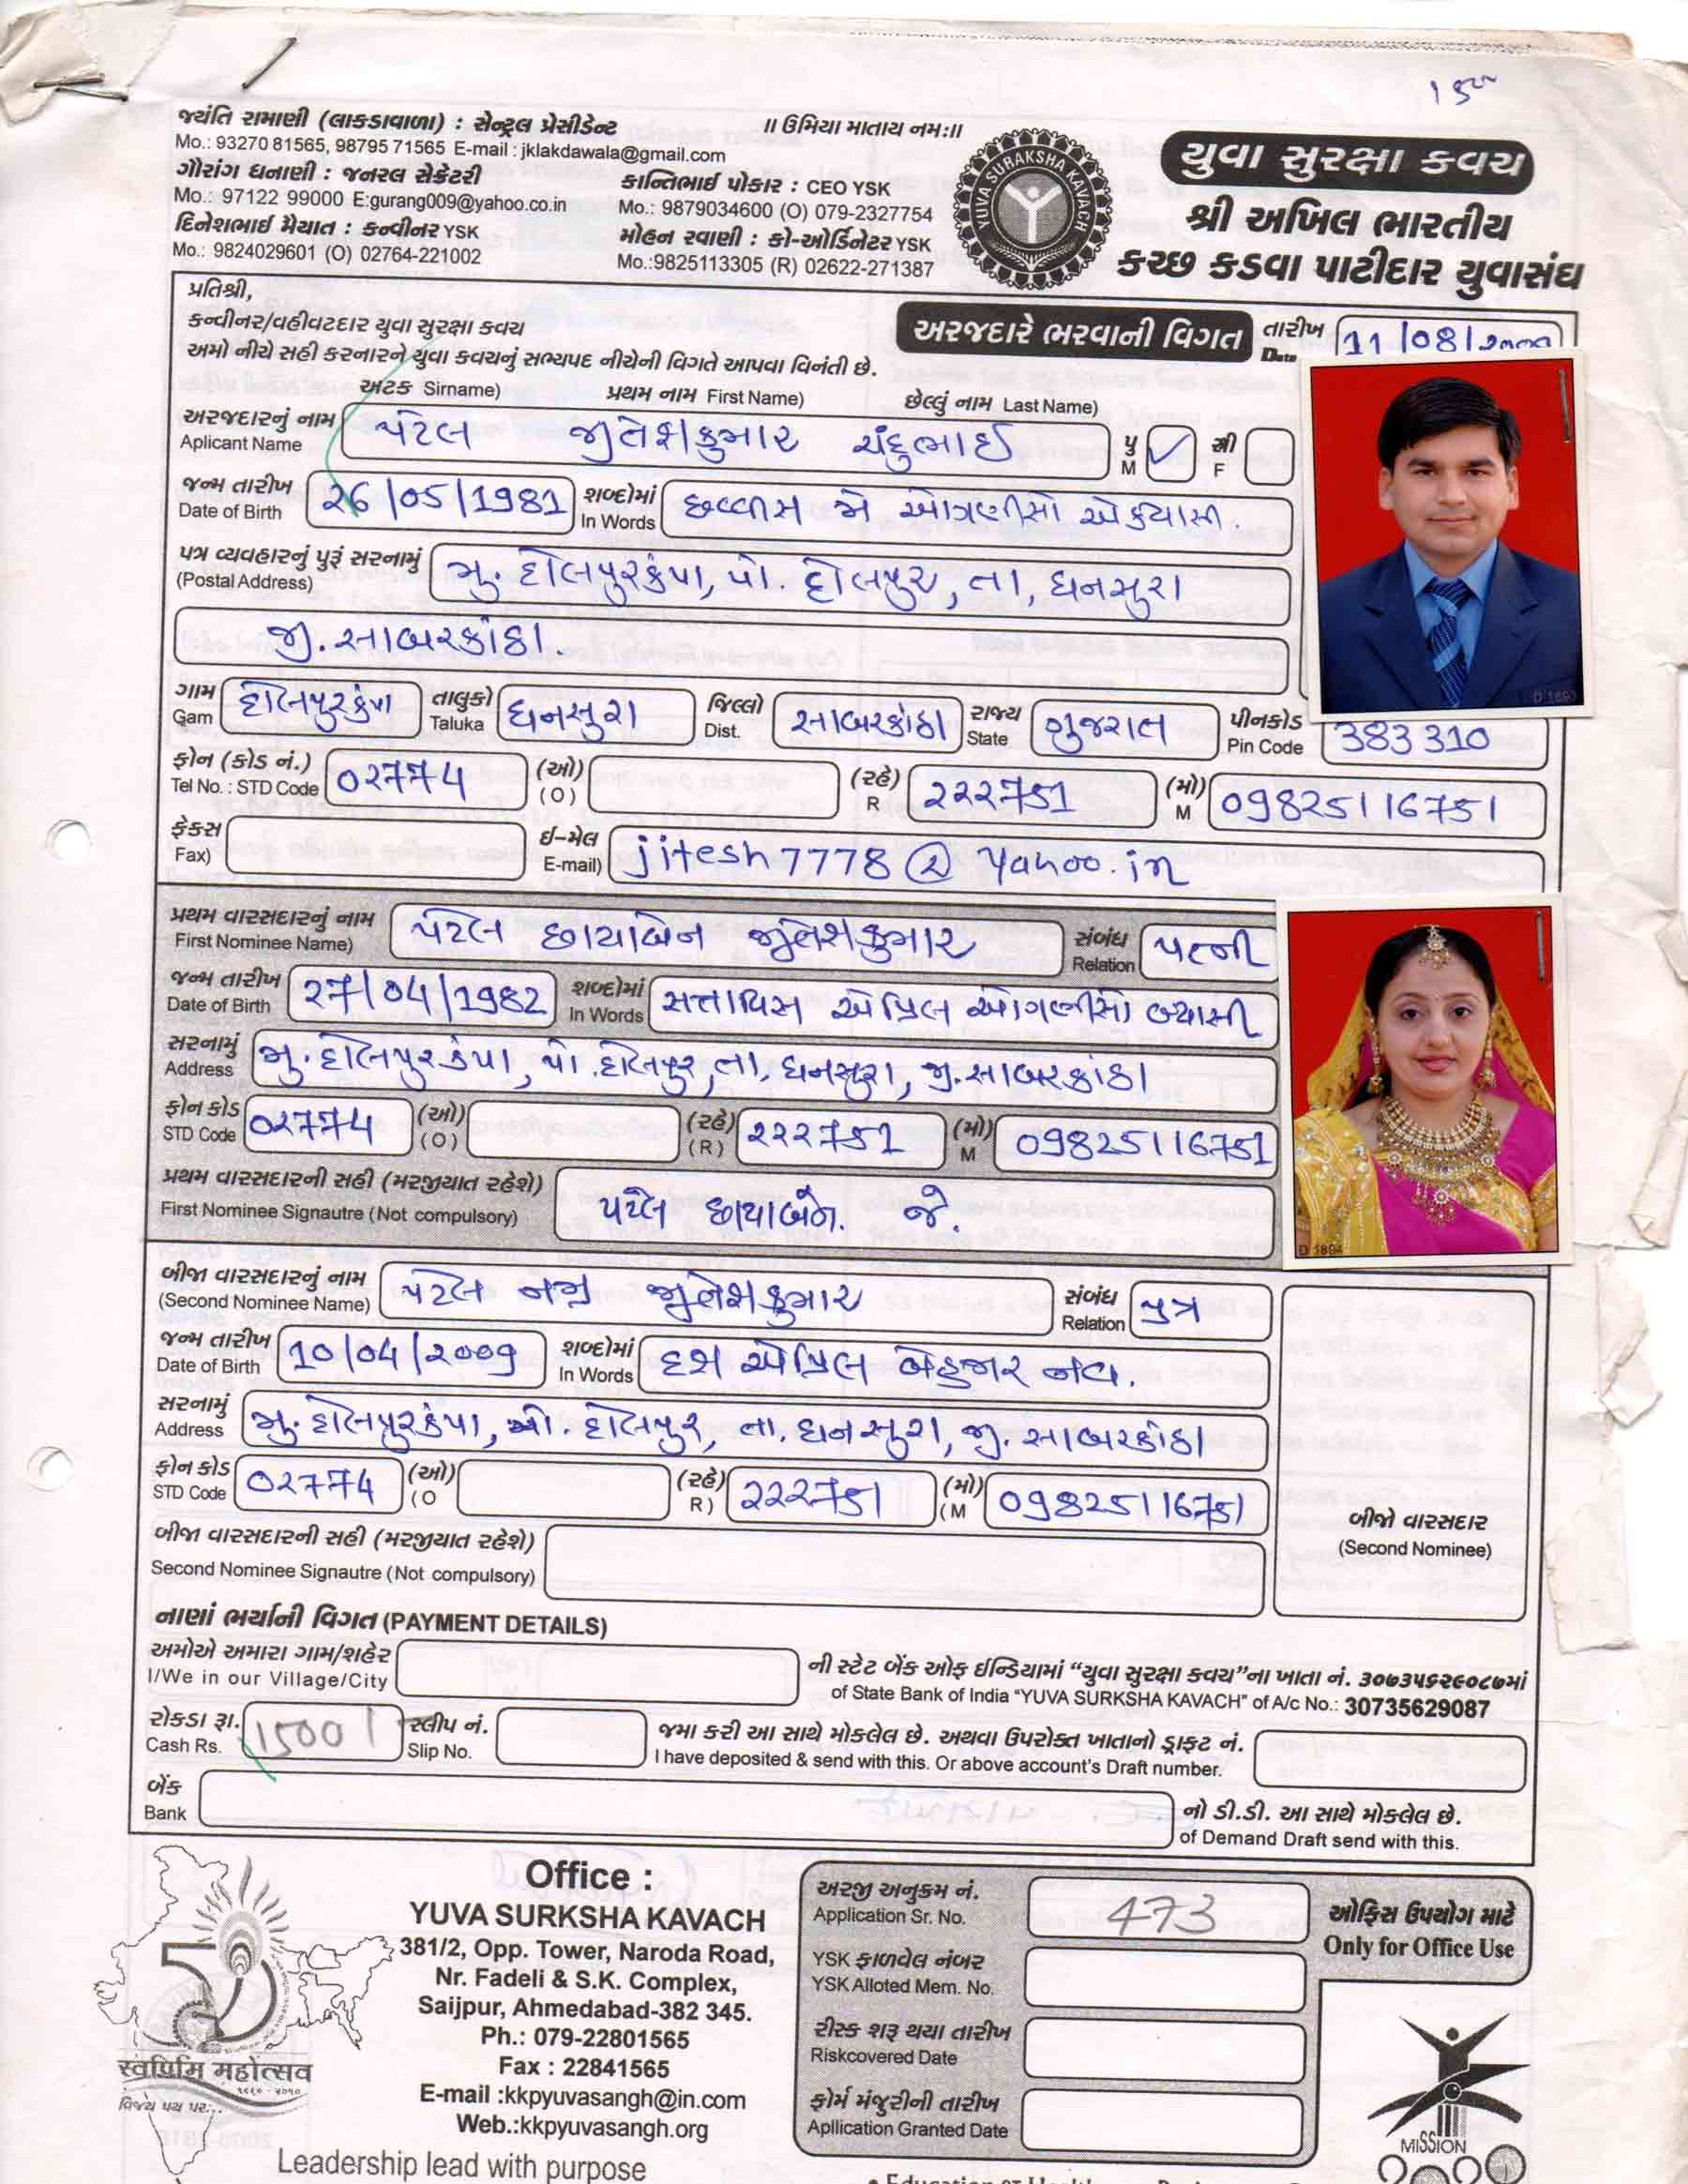 જયંતિ રામાણી (લાકડાવાળા) : સેન્ટ્રલ પ્રેસીડેન્ટ
Mo.: 93270 81565, 98795 71565 E-mail : jklakdawala@gmail.com
ગૌરાંગ ધનાણી : જનરલ સેક્રેટરી
Mo.: 97122 99000 E:gurang009@yahoo.co.in
દિનેશભાઈ મૈયાત : કન્વીનર YSK
Mo.: 9824029601 (O) 02764-221002
॥ ઉમિયા માતાય નમઃ॥
કાન્તિભાઈ પોકાર : CEO YSK
Mo.: 9879034600 (O) 079-2327754
મોહન રવાણી : કો-ઓર્ડિનેટર YSK
Mo.:9825113305 (R) 02622-271387
YUVA SURAKSHA KAVACH
યુવા સુરક્ષા કવચ
શ્રી અખિલ ભારતીય
કચ્છ કડવા પાટીદાર યુવાસંઘ
પ્રતિશ્રી,
કન્વીનર/વહીવટદાર યુવા સુરક્ષા કવચ
અમો નીચે સહી કરનારને યુવા કવચનું સભ્યપદ નીચેની વિગતે આપવા વિનંતી છે.
અરજદારે ભરવાની વિગત તારીખ Date 11/08/૨૦૦૦
અટક Sirname) પ્રથમ નામ First Name) છેલ્લું નામ Last Name)
અરજદારનું નામ Aplicant Name પટેલ જીતેશકુમાર ચંદુભાઈ પુ M ✓ સ્ત્રી F
જન્મ તારીખ Date of Birth 26/05/1981 શબ્દોમાં In Words છવ્વીસ મે ઓગણીસો એક્યાસી.
પત્ર વ્યવહારનું પુરૂં સરનામું (Postal Address) મુ. દોલપુરકંપા, પો. દોલપુર, તા, ધનસુરા
જી. સાબરકાંઠા.
ગામ Gam દોલપુરકંપા તાલુકો Taluka ધનસુરા જિલ્લો Dist. સાબરકાંઠા રાજ્ય State ગુજરાત પીનકોડ Pin Code 383310
ફોન (કોડ નં.) Tel No. : STD Code 02774 (ઓ) (O) (રહે) R ૨૨૨751 (મો) M 09825116751
ફેકસ Fax) ઈ-મેલ E-mail) jitesh7778@yahoo.in
પ્રથમ વારસદારનું નામ First Nominee Name) પટેલ છાયાબેન જીતેશકુમાર સંબંધ Relation પત્ની
જન્મ તારીખ Date of Birth 27/04/1982 શબ્દોમાં In Words સત્તાવિસ એપ્રિલ ઓગણીસો બ્યાસી
સરનામું Address મુ. દોલપુરકંપા, પો. દોલપુર, તા, ધનસુરા, જી. સાબરકાંઠા
ફોન કોડ STD Code 02774 (ઓ) (O) (રહે) (R) ૨૨૨751 (મો) M 09825116751
પ્રથમ વારસદારની સહી (મરજીયાત રહેશે)
First Nominee Signautre (Not compulsory) પટેલ છાયાબેન. જે.
D 1894
બીજા વારસદારનું નામ (Second Nominee Name) પટેલ જીતેશકુમાર સંબંધ Relation પુત્ર
જન્મ તારીખ Date of Birth 10/04/૨009 શબ્દોમાં In Words દશ એપ્રિલ બેહજાર નવ.
સરનામું Address મુ. દોલપુરકંપા, પો. દોલપુર, તા. ધનસુરા, જી. સાબરકાંઠા
ફોન કોડ STD Code 02774 (ઓ) (O (રહે) R) ૨૨૨751 (મો) (M 09825116751
બીજા વારસદારની સહી (મરજીયાત રહેશે)
Second Nominee Signautre (Not compulsory)
બીજો વારસદાર
(Second Nominee)
નાણાં ભર્યાની વિગત (PAYMENT DETAILS)
અમોએ અમારા ગામ/શહેર ની સ્ટેટ બેંક ઓફ ઈન્ડિયામાં “યુવા સુરક્ષા કવચ”ના ખાતા નં. ૩૦૭૩૫૬૨૯૦૮૭માં
I/We in our Village/City of State Bank of India "YUVA SURKSHA KAVACH" of A/c No.: 30735629087
રોકડા રૂા. Cash Rs. 1500/ સ્લીપ નં. Slip No. જમા કરી આ સાથે મોકલેલ છે. અથવા ઉપરોક્ત ખાતાનો ડ્રાફ્ટ નં.
I have deposited & send with this. Or above account's Draft number.
બેંક Bank નો ડી.ડી. આ સાથે મોકલેલ છે.
of Demand Draft send with this.
Office :
YUVA SURKSHA KAVACH
381/2, Opp. Tower, Naroda Road,
Nr. Fadeli & S.K. Complex,
Saijpur, Ahmedabad-382 345.
Ph.: 079-22801565
Fax : 22841565
E-mail :kkpyuvasangh@in.com
Web.:kkpyuvasangh.org
Leadership lead with purpose
અરજી અનુક્રમ નં. Application Sr. No. 473
YSK ફાળવેલ નંબર YSK Alloted Mem. No.
રીસ્ક શરૂ થયા તારીખ Riskcovered Date
ફોર્મ મંજુરીની તારીખ Apllication Granted Date
ઓફિસ ઉપયોગ માટે
Only for Office Use
50
स्वर्णिम महोत्सव
૧૯૬૦ - ૨૦૧૦
વિજય પથ પર...
MISSION